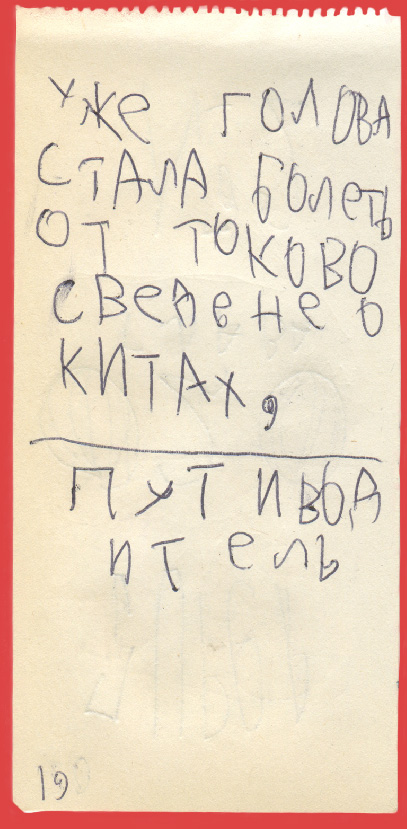 УЖЕ ГОЛОВА
СТАЛА БОЛЕТЬ
ОТ ТОКОВО
СВЕДЕНЕ О
КИТАХ,
ПУТИВОД
ИТЕЛЬ
19